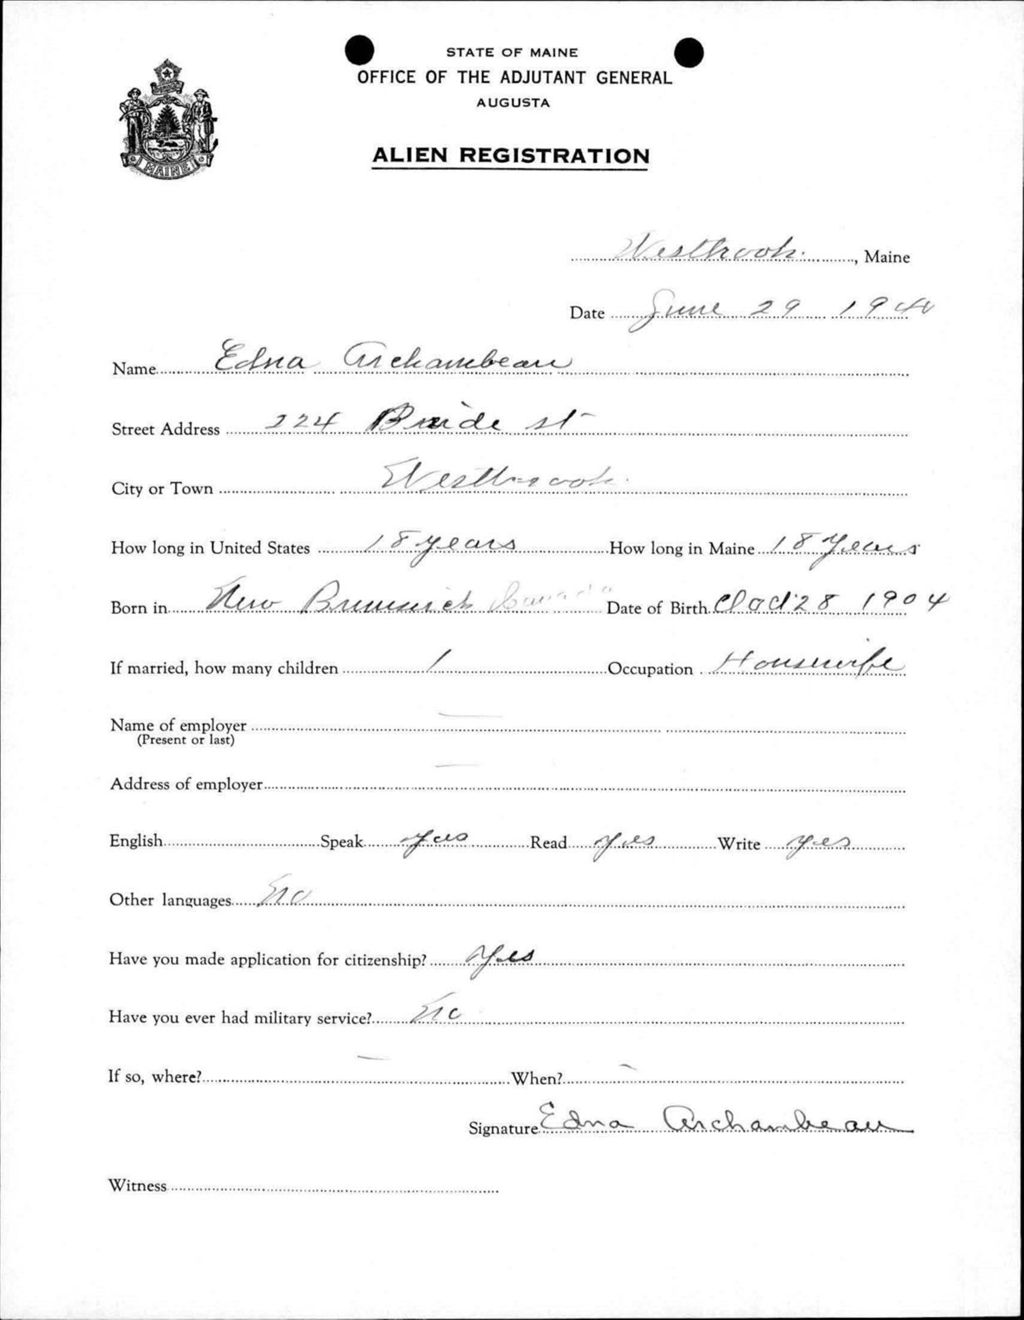 STATE OF MAINE
OFFICE OF THE ADJUTANT GENERAL
AUGUSTA
MAINE
ALIEN REGISTRATION
Westbrook, Maine
Date June 29 1940
Name Edna Archambeau
Street Address 224 st
City or Town Westbrook
How long in United States 18 years How long in Maine 18 years
Born in New Brunswick Canada Date of Birth 28 1904
If married, how many children 1 Occupation Housewife
Name of employer
(Present or last)
Address of employer
English Speak yes Read yes Write yes
Other languages no
Have you made application for citizenship? yes
Have you ever had military service? no
If so, where? When?
Signature Edna Archambeau
Witness